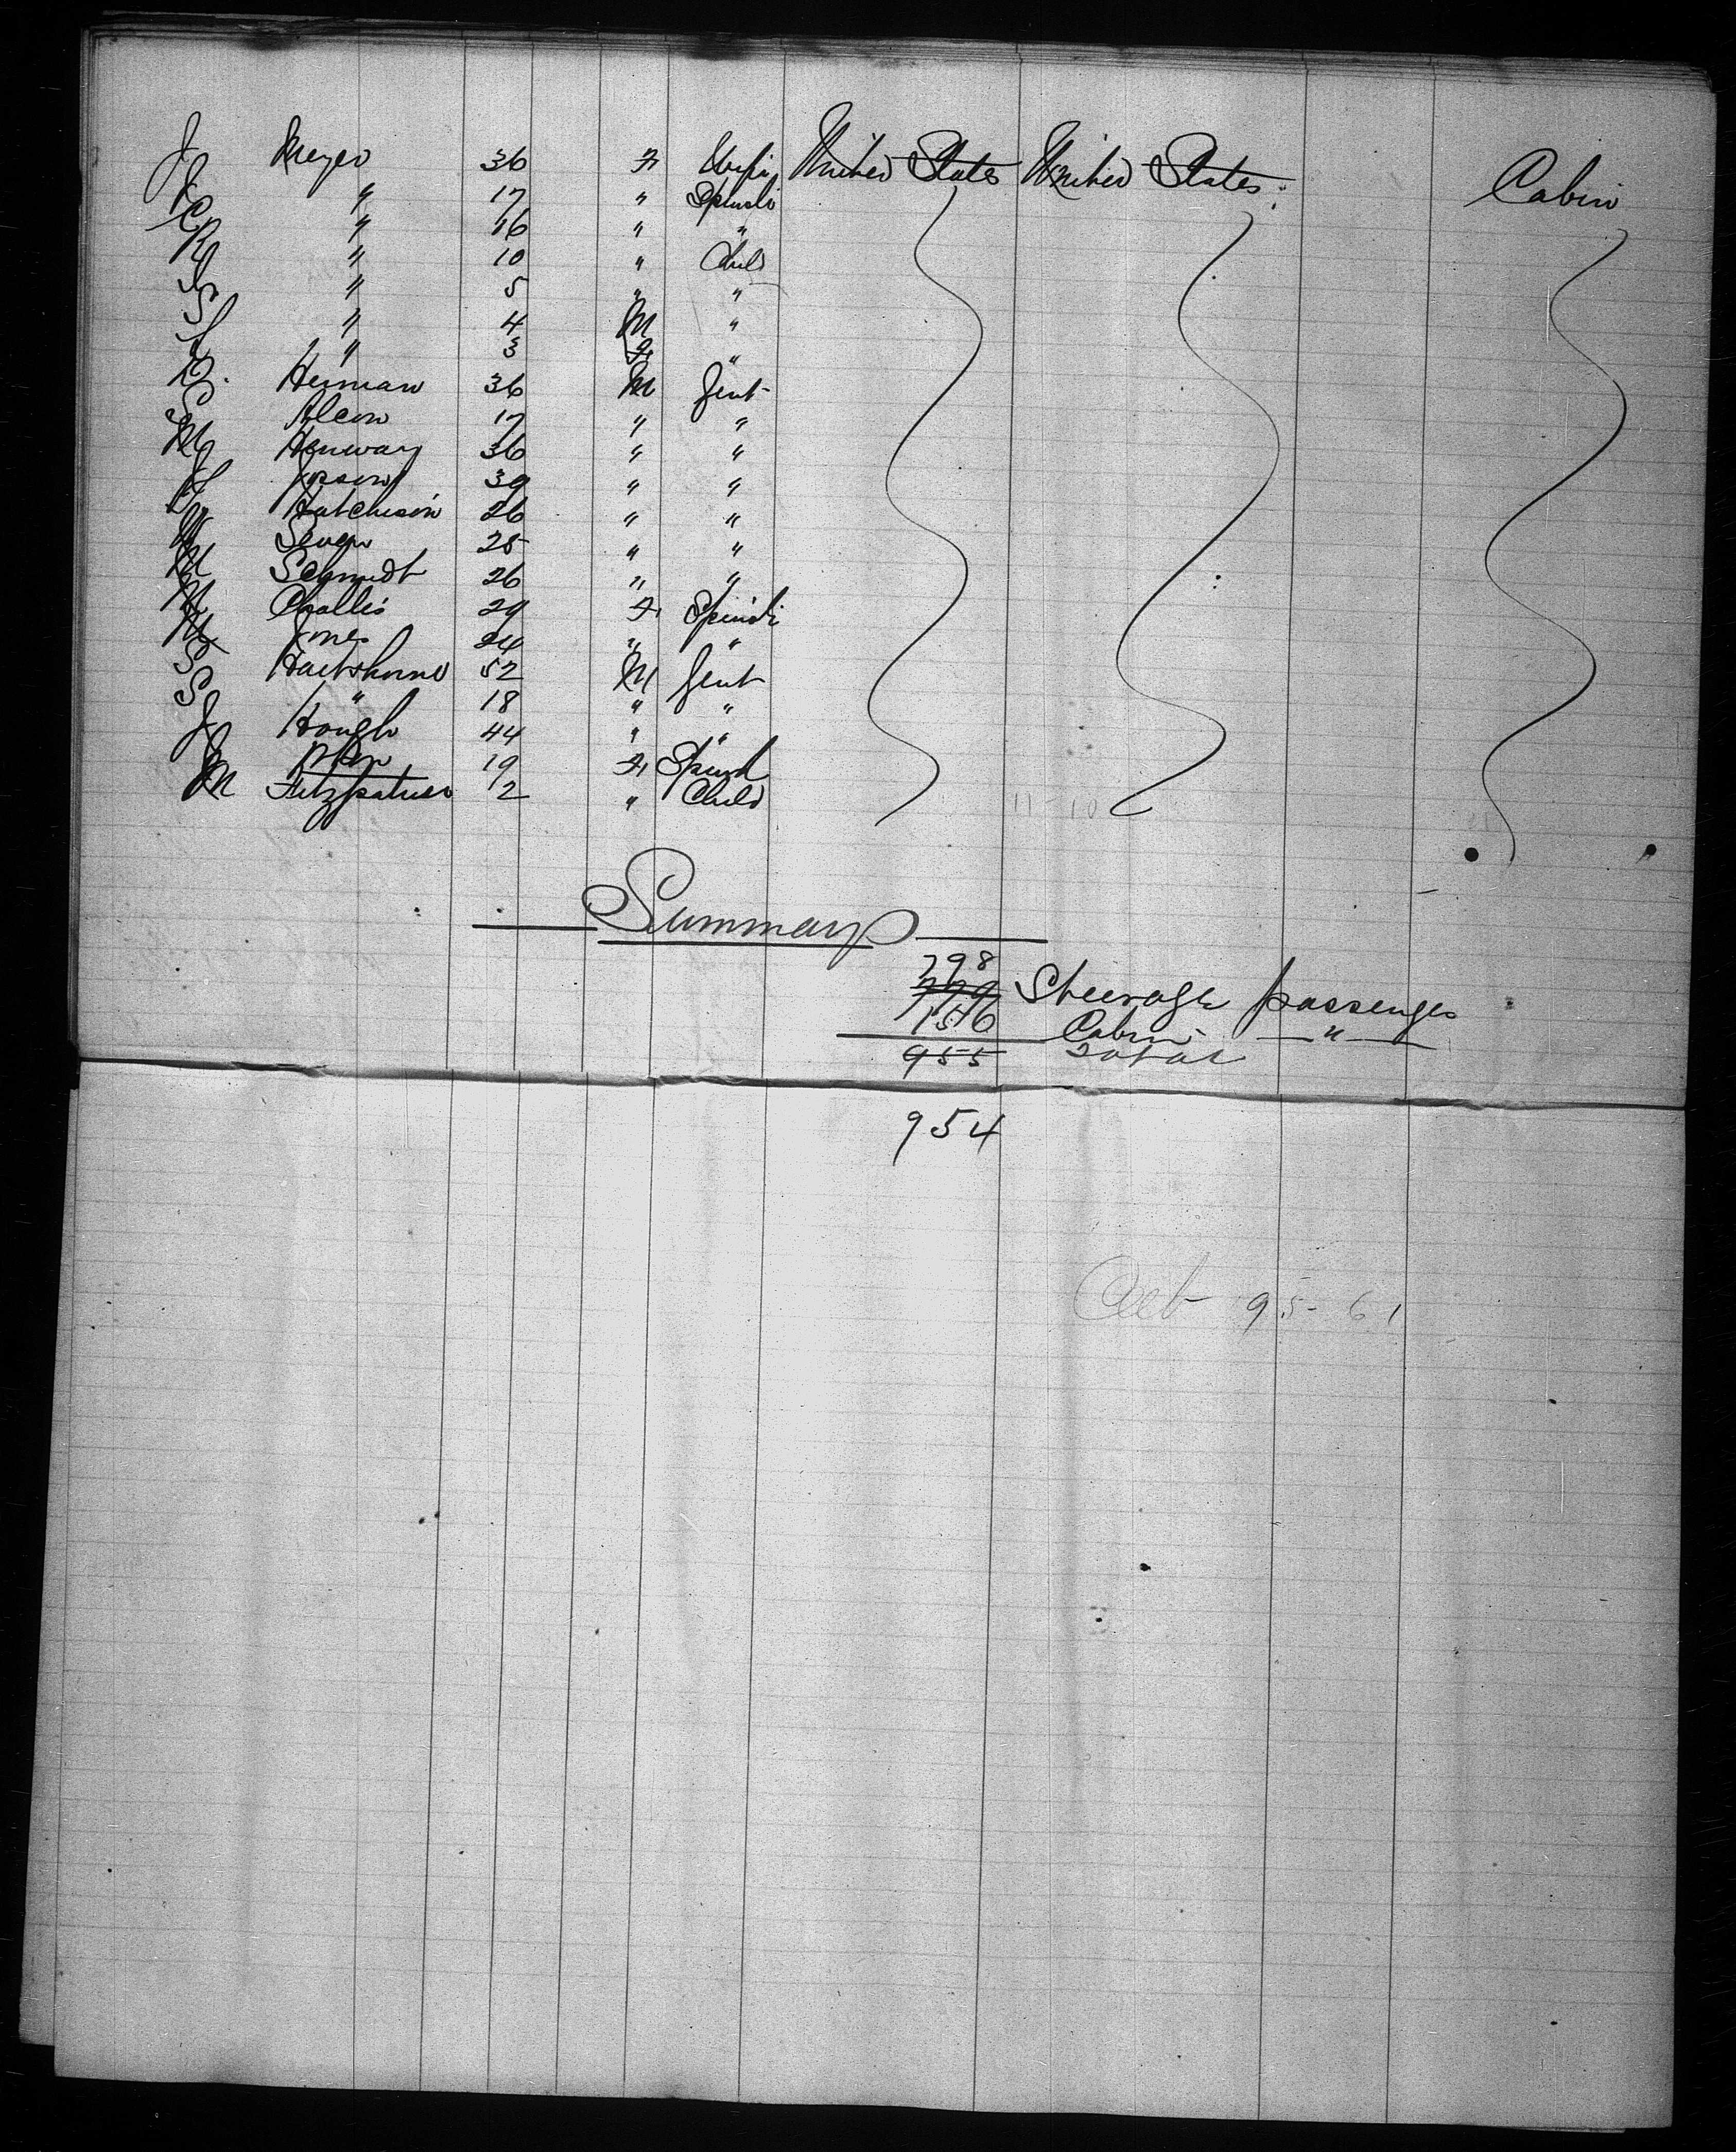 J Meyer 36 F Wife United States United States Cabin
J " 17 " Spinster
C " 16 " "
R " 10 " Child
" 5 " "
S " 4 M "
" 3 F "
D. Herman 36 M Gent
S Alcon 17 " "
M Henway 36 " "
J 39 " "
Hutcheson 26 " "
W 25 " "
M Schmidt 26 " "
M Challis 29 F Spinst
M Jones 24 " "
S Hartshorne 52 M Gent
S " 18 " "
J Hough 44 " "
J 19 F Spinst
M Fitzpatrick 12 " Child
Summary
798
779 Steerage passenges
156 Cabin "
955 Total
954
95-61